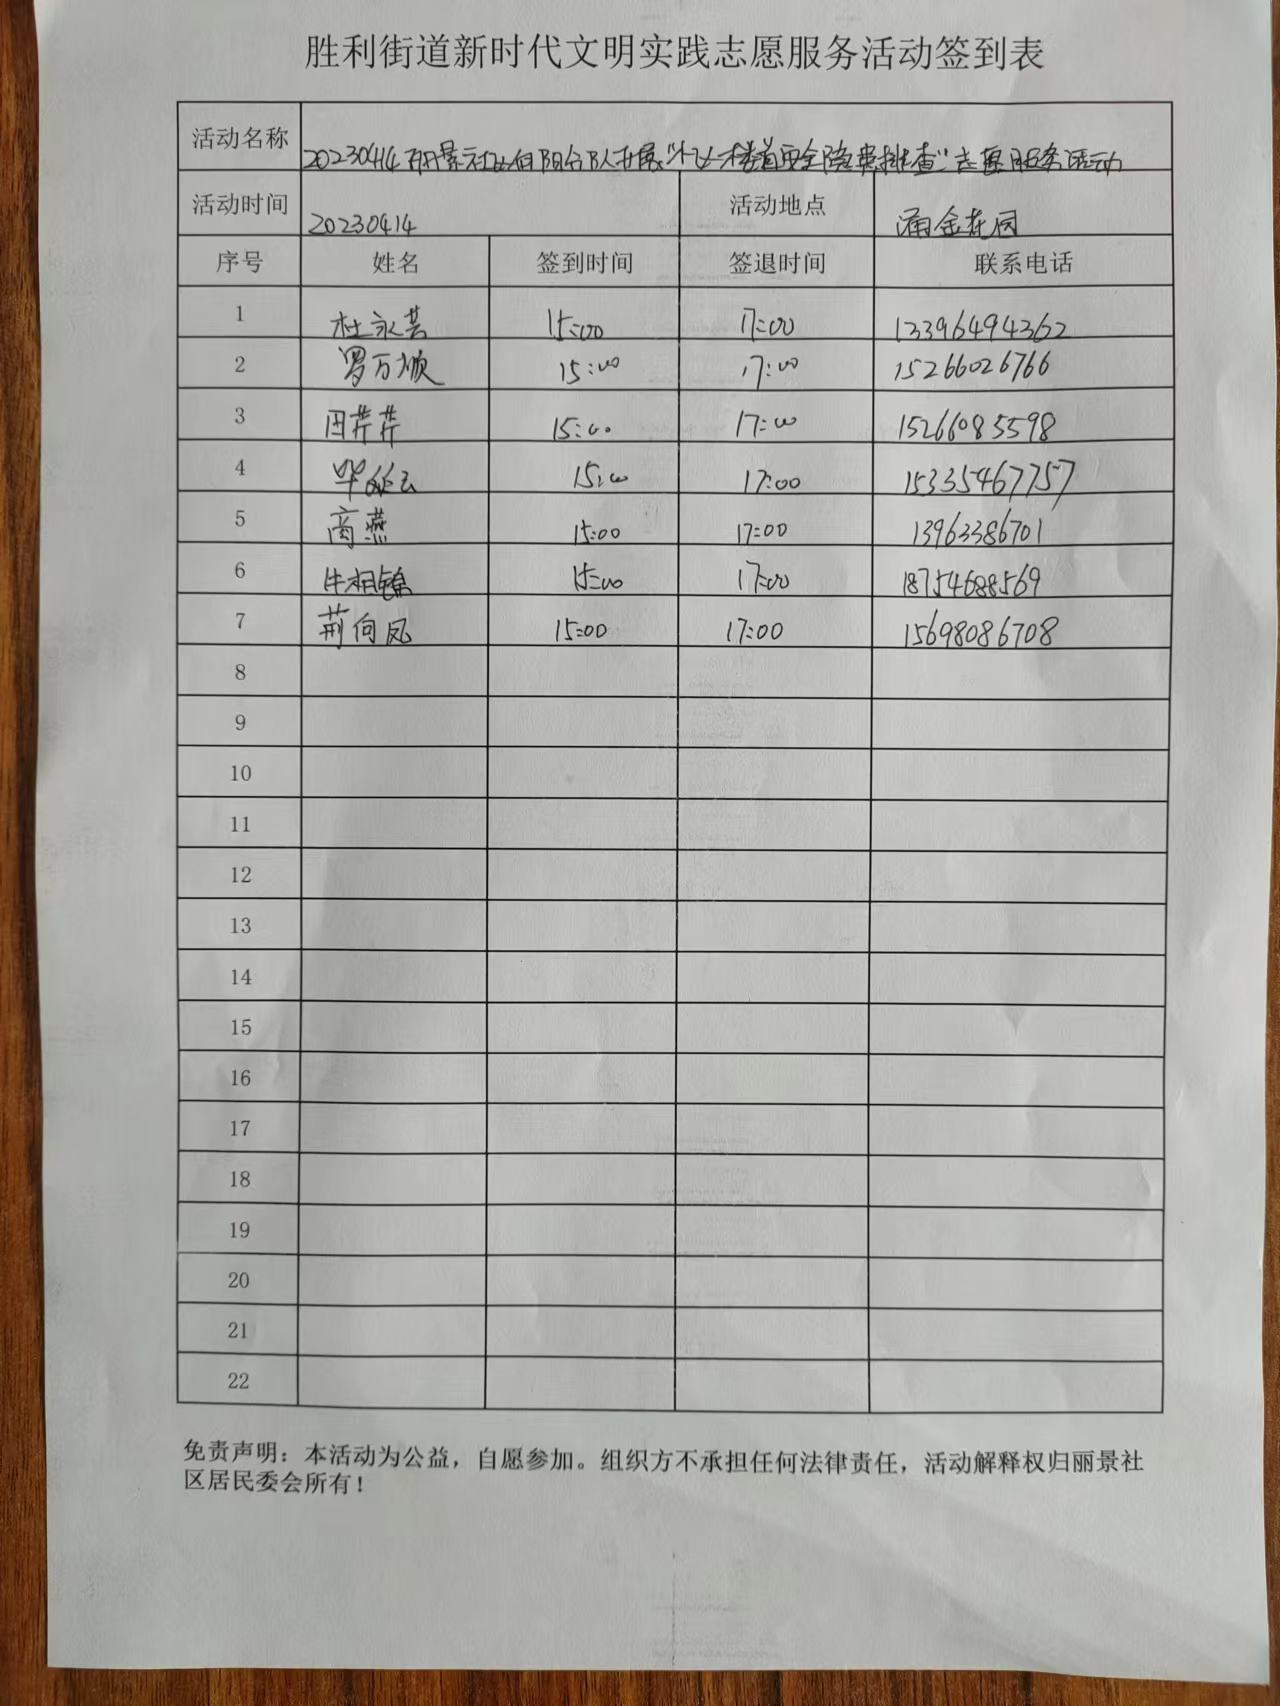 胜利街道新时代文明实践志愿服务活动签到表
活动名称 20230414丽景社区向阳分队开展“小区楼道安全隐患排查”志愿服务活动
活动时间 20230414 活动地点 涌金花园
序号 姓名 签到时间 签退时间 联系电话
1 杜永芸 15:00 17:00 13396494362
2 罗万顺 15:00 17:00 15266026766
3 田芹芹 15:00 17:00 15266085598
4 毕延云 15:00 17:00 15335467757
5 商燕 15:00 17:00 13963386701
6 牛相锦 15:00 17:00 18754688569
7 荆向凤 15:00 17:00 15698086708
8
9
10
11
12
13
14
15
16
17
18
19
20
21
22
免责声明：本活动为公益，自愿参加。组织方不承担任何法律责任，活动解释权归丽景社
区居民委会所有！